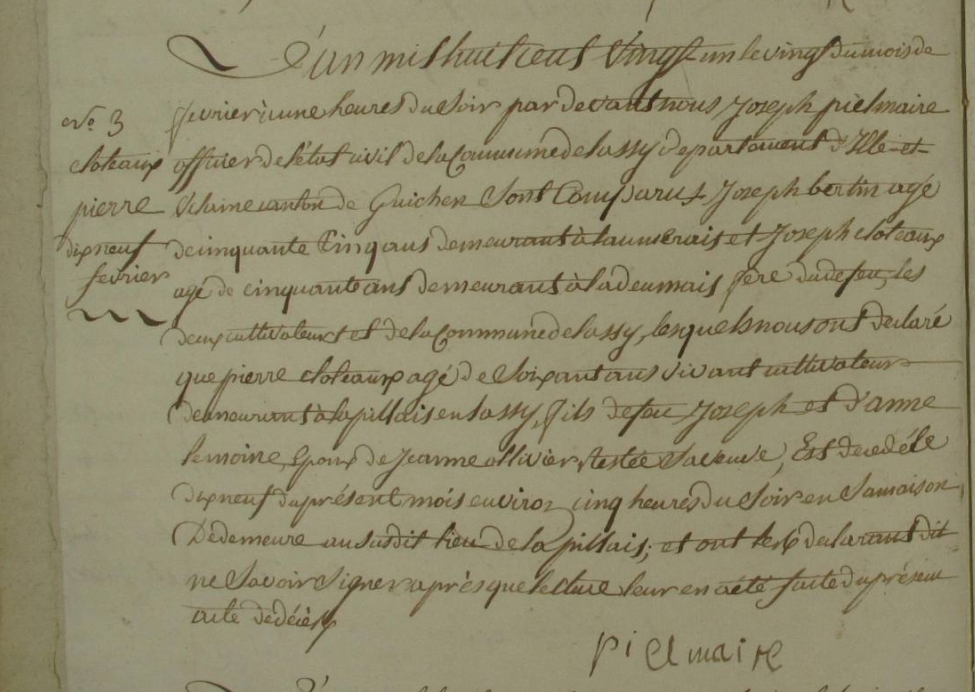 L'an mil huit cent vingt un le vingt du mois de
N.º 3
cloteaux
pierre
dix neuf
fevrier
fevrier à une heures du soir par devant nous Joseph piel maire
officier de létat civil de la Commune de lassy departement d'Ille-et-
Vilaine canton de Guichen Sont Comparus Joseph bertin agé
de cinquante Cinq ans demeurant à et Joseph cloteaux
agé de cinquante ans demeurant à frere du defeu, les
deux cultivateurs et de la Commune de lassy, lesquels nous ont declaré
que pierre cloteaux agé de Soixant ans vivant cultivateur
demeurant à la pillais en lassy, fils de feu Joseph et d'anne
lemoine, Epoux de Jeanne ollivier restée Sa veuve, Est decedé le
dix neuf du présent mois environ cinq heures du Soir en Sa maison
De demeure au susdit lieu de la pillais; et ont les declarant dit
ne Savoir Signer après que lecture leur en a été faite du présent
acte de décès
piel maire